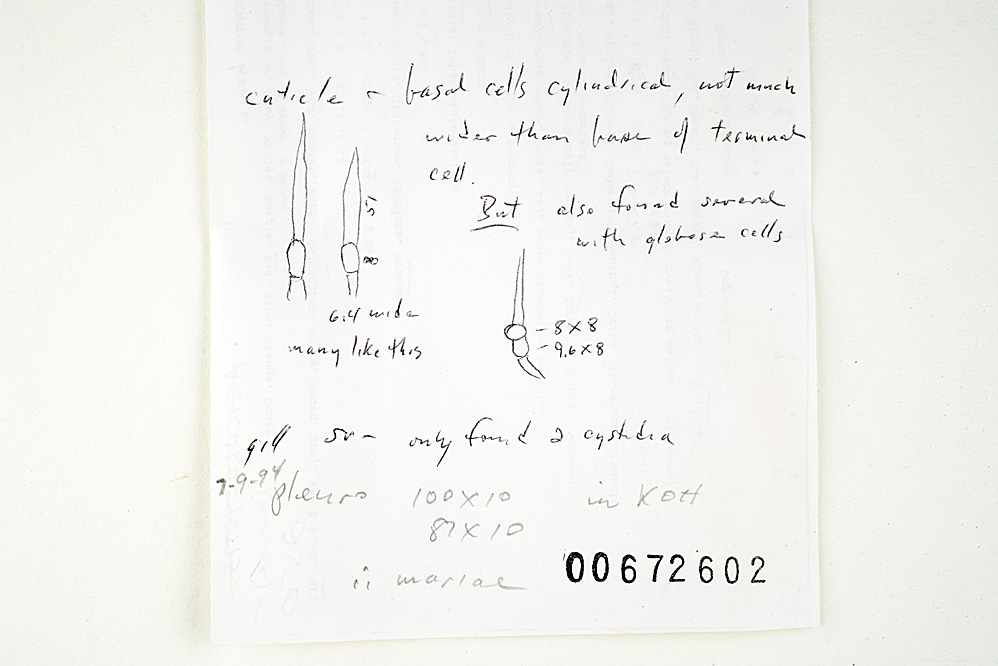 cuticle - basal cells cylindrical, not much
wider than base of terminal
cell.
But also found several
with globose cells
57
8
6.4 wide
many like this
- 8X8
- 9.6X8
gill sv - only found 2 cystidia
7-9-94
pleuro 100X10 in KOH
87X10
mariae
00672602